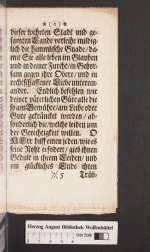 ( 6 )
dieser wehrten Stadt und ge-
samten Lande verleihe mildig-
lich die himmlische Gnade/ da-
mit Sie alle leben im Glauben
und in deiner Furcht/ in Gehor-
sam gegen ihre Obere/ und in
rechtschaffener Liebe unterein-
ander. Endlich befehlen wir
deiner väterlichen Güte alle die
so am Gemühte/ am Leibe oder
Gute gekräncket werden/ ab-
sonderlich die/ welche leiden um
der Gerechtigkeit willen. O
HErr laß einen jeden
eine
Gedult in ihrem Leiden/ und
ein glückliches Ende ihres
5 Trüb-
Herzog August Bibliothek Wolfenbüttel